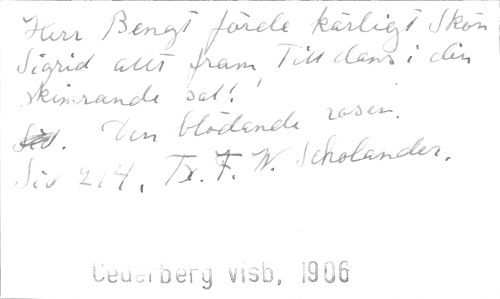 Herr Bengt förde kärligt skön
Sigrid allt fram, Till dans i din
skimrande sal!
Den blödande rosen.
Sid 214. Tr. F. W. Scholander.
Cederberg visb, 1906